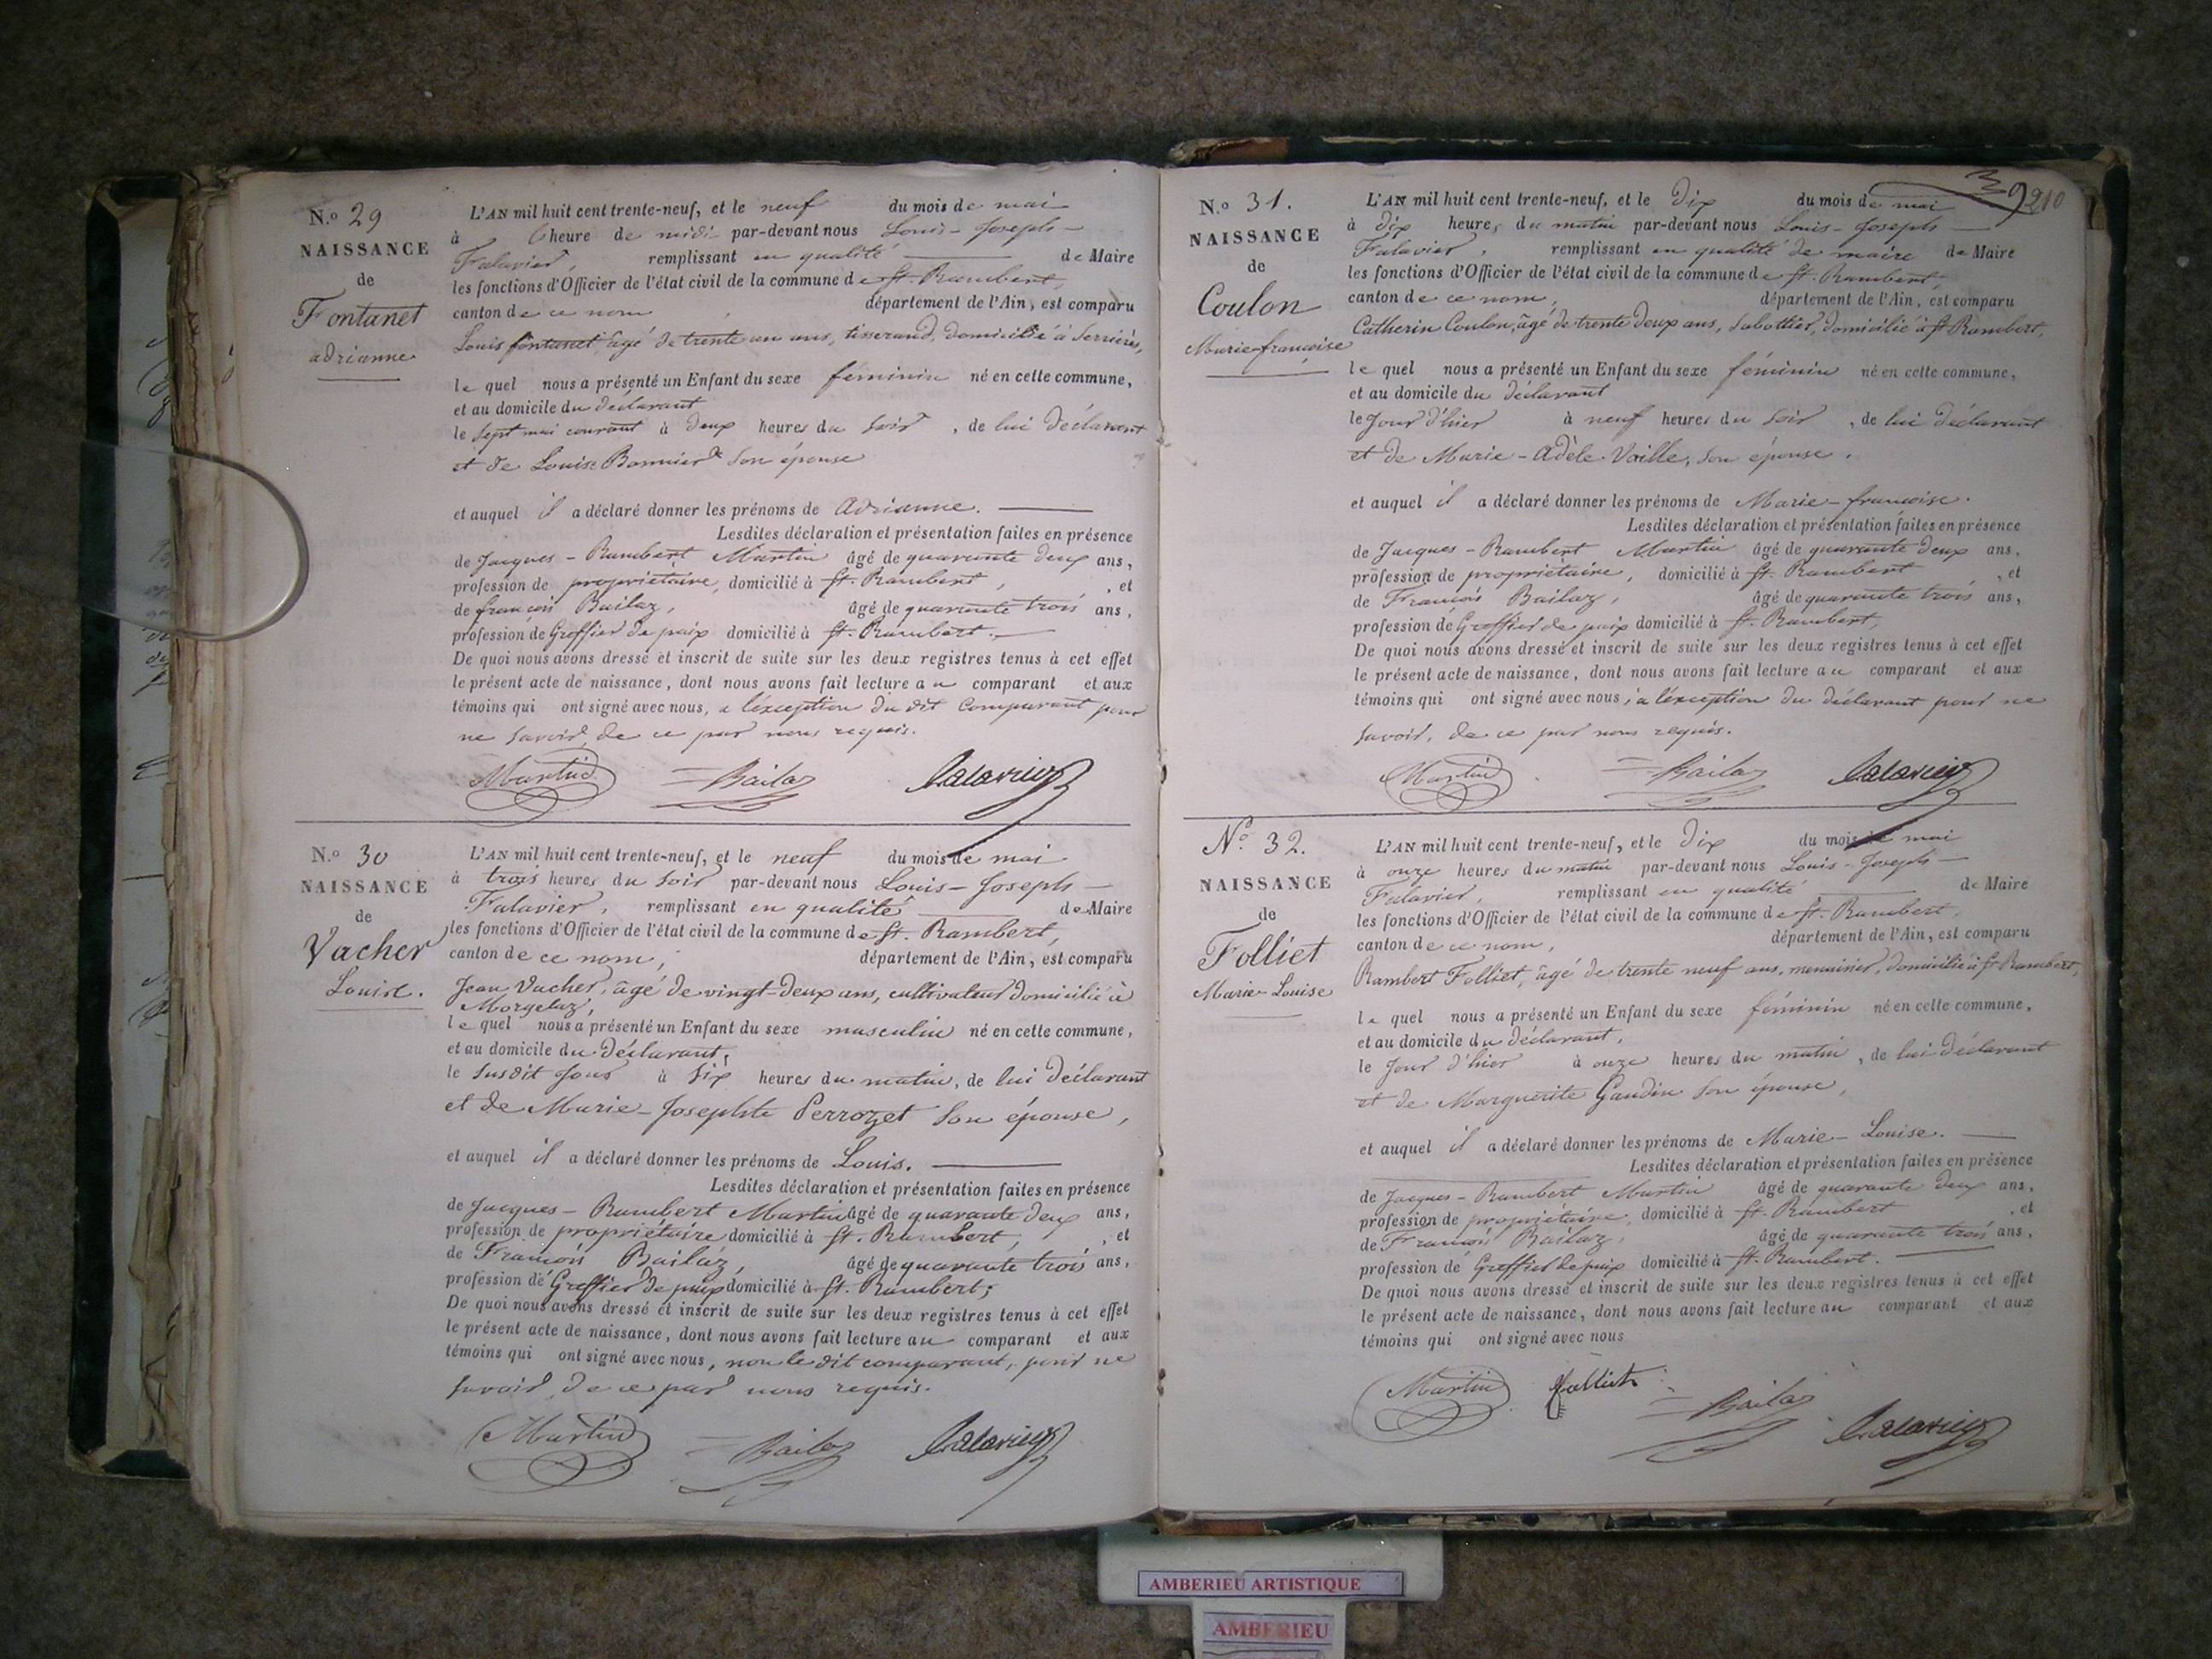 N.o 29
NAISSANCE
de
Fontanet
adrianne
L'AN mil huit cent trente-neuf, et le neuf du mois de mai
à heure de midi par-devant nous Louis-Joseph
Falavier, remplissant en qualité de Maire
les fonctions d'Officier de l'état civil de la commune de St. Rambert,
canton de ce nom, département de l'Ain, est comparu
Louis fontanet, âgé de trente un ans, tisserand, domicilié à Serrières,
le quel nous a présenté un Enfant du sexe féminin né en cette commune,
et au domicile du déclarant
le sept mai courant à deux heures du soir, de lui déclarant
et de Louise Bonnier son épouse
et auquel il a déclaré donner les prénoms de adrianne.
Lesdites déclaration et présentation faites en présence
de Jacques-Rambert Martin âgé de quarante deux ans,
profession de propriétaire, domicilié à St. Rambert, , et
de françois Bailaz, âgé de quarante trois ans,
profession de Greffier de paix domicilié à St. Rambert.
De quoi nous avons dressé et inscrit de suite sur les deux registres tenus à cet effet
le présent acte de naissance, dont nous avons fait lecture au comparant et aux
témoins qui ont signé avec nous, a l'exception du dit Comparant pour
ne savoir, de ce par nous requis.
Martin Bailaz Falavier
N.o 30
NAISSANCE
de
Vacher
Louise.
L'AN mil huit cent trente-neuf, et le neuf du mois de mai
à trois heures du soir par-devant nous Louis-Joseph
Falavier, remplissant en qualité de Maire
les fonctions d'Officier de l'état civil de la commune de St. Rambert,
canton de ce nom, département de l'Ain, est comparu
Jean Vacher, âgé de vingt-deux ans, cultivateur domicilié à
Morgelaz,
le quel nous a présenté un Enfant du sexe masculin né en cette commune,
et au domicile du déclarant,
le susdit jour à six heures du matin, de lui déclarant
et de Marie-Josephte Perrozet son épouse,
et auquel il a déclaré donner les prénoms de Louis.
Lesdites déclaration et présentation faites en présence
de Jacques-Rambert Martin âgé de quarante deux ans,
profession de propriétaire domicilié à St. Rambert, , et
de François Bailaz, âgé de quarante trois ans,
profession de Greffier de paix domicilié à St. Rambert;
De quoi nous avons dressé et inscrit de suite sur les deux registres tenus à cet effet
le présent acte de naissance, dont nous avons fait lecture au comparant et aux
témoins qui ont signé avec nous, non le dit comparant, pour ne
savoir, de ce par nous requis.
Martin Bailaz Falavier
39 210
N.o 31.
NAISSANCE
de
Coulon
Marie-françoise
L'AN mil huit cent trente-neuf, et le dix du mois de mai
à dix heures du matin par-devant nous Louis-Joseph
Falavier, remplissant en qualité de maire de Maire
les fonctions d'Officier de l'état civil de la commune de St. Rambert,
canton de ce nom, département de l'Ain, est comparu
Catherin Coulon, âgé de trente deux ans, sabottier, domicilié à St Rambert,
le quel nous a présenté un Enfant du sexe féminin né en cette commune,
et au domicile du déclarant
le jour d'hier à neuf heures du soir, de lui déclarant
et de Marie-Adèle Vaille, son épouse,
et auquel il a déclaré donner les prénoms de Marie-françoise.
Lesdites déclaration et présentation faites en présence
de Jacques-Rambert Martin âgé de quarante deux ans,
profession de propriétaire, domicilié à St. Rambert , et
de François Bailaz, âgé de quarante trois ans,
profession de Greffier de paix domicilié à St. Rambert,
De quoi nous avons dressé et inscrit de suite sur les deux registres tenus à cet effet
le présent acte de naissance, dont nous avons fait lecture au comparant et aux
témoins qui ont signé avec nous, a l'exception du déclarant pour ne
savoir, de ce par nous requis.
Martin Bailaz Falavier
N.o 32.
NAISSANCE
de
Folliet
Marie-Louise
L'AN mil huit cent trente-neuf, et le dix du mois de mai
à onze heures du matin par-devant nous Louis-Joseph
Falavier, remplissant en qualité de Maire
les fonctions d'Officier de l'état civil de la commune de St. Rambert,
canton de ce nom, département de l'Ain, est comparu
Rambert Folliet, âgé de trente neuf ans, menuisier, domicilié à St Rambert,
le quel nous a présenté un Enfant du sexe féminin né en cette commune,
et au domicile du déclarant,
le jour d'hier à onze heures du matin, de lui déclarant
et de Marguerite Gaudin son épouse,
et auquel il a déclaré donner les prénoms de Marie-Louise.
Lesdites déclaration et présentation faites en présence
de Jacques-Rambert Martin âgé de quarante deux ans,
profession de propriétaire, domicilié à St. Rambert , et
de François Bailaz, âgé de quarante trois ans,
profession de Greffier de paix domicilié à St. Rambert.
De quoi nous avons dressé et inscrit de suite sur les deux registres tenus à cet effet
le présent acte de naissance, dont nous avons fait lecture au comparant et aux
témoins qui ont signé avec nous
Martin folliet Bailaz Falavier
AMBERIEU ARTISTIQUE
AMBERIEU